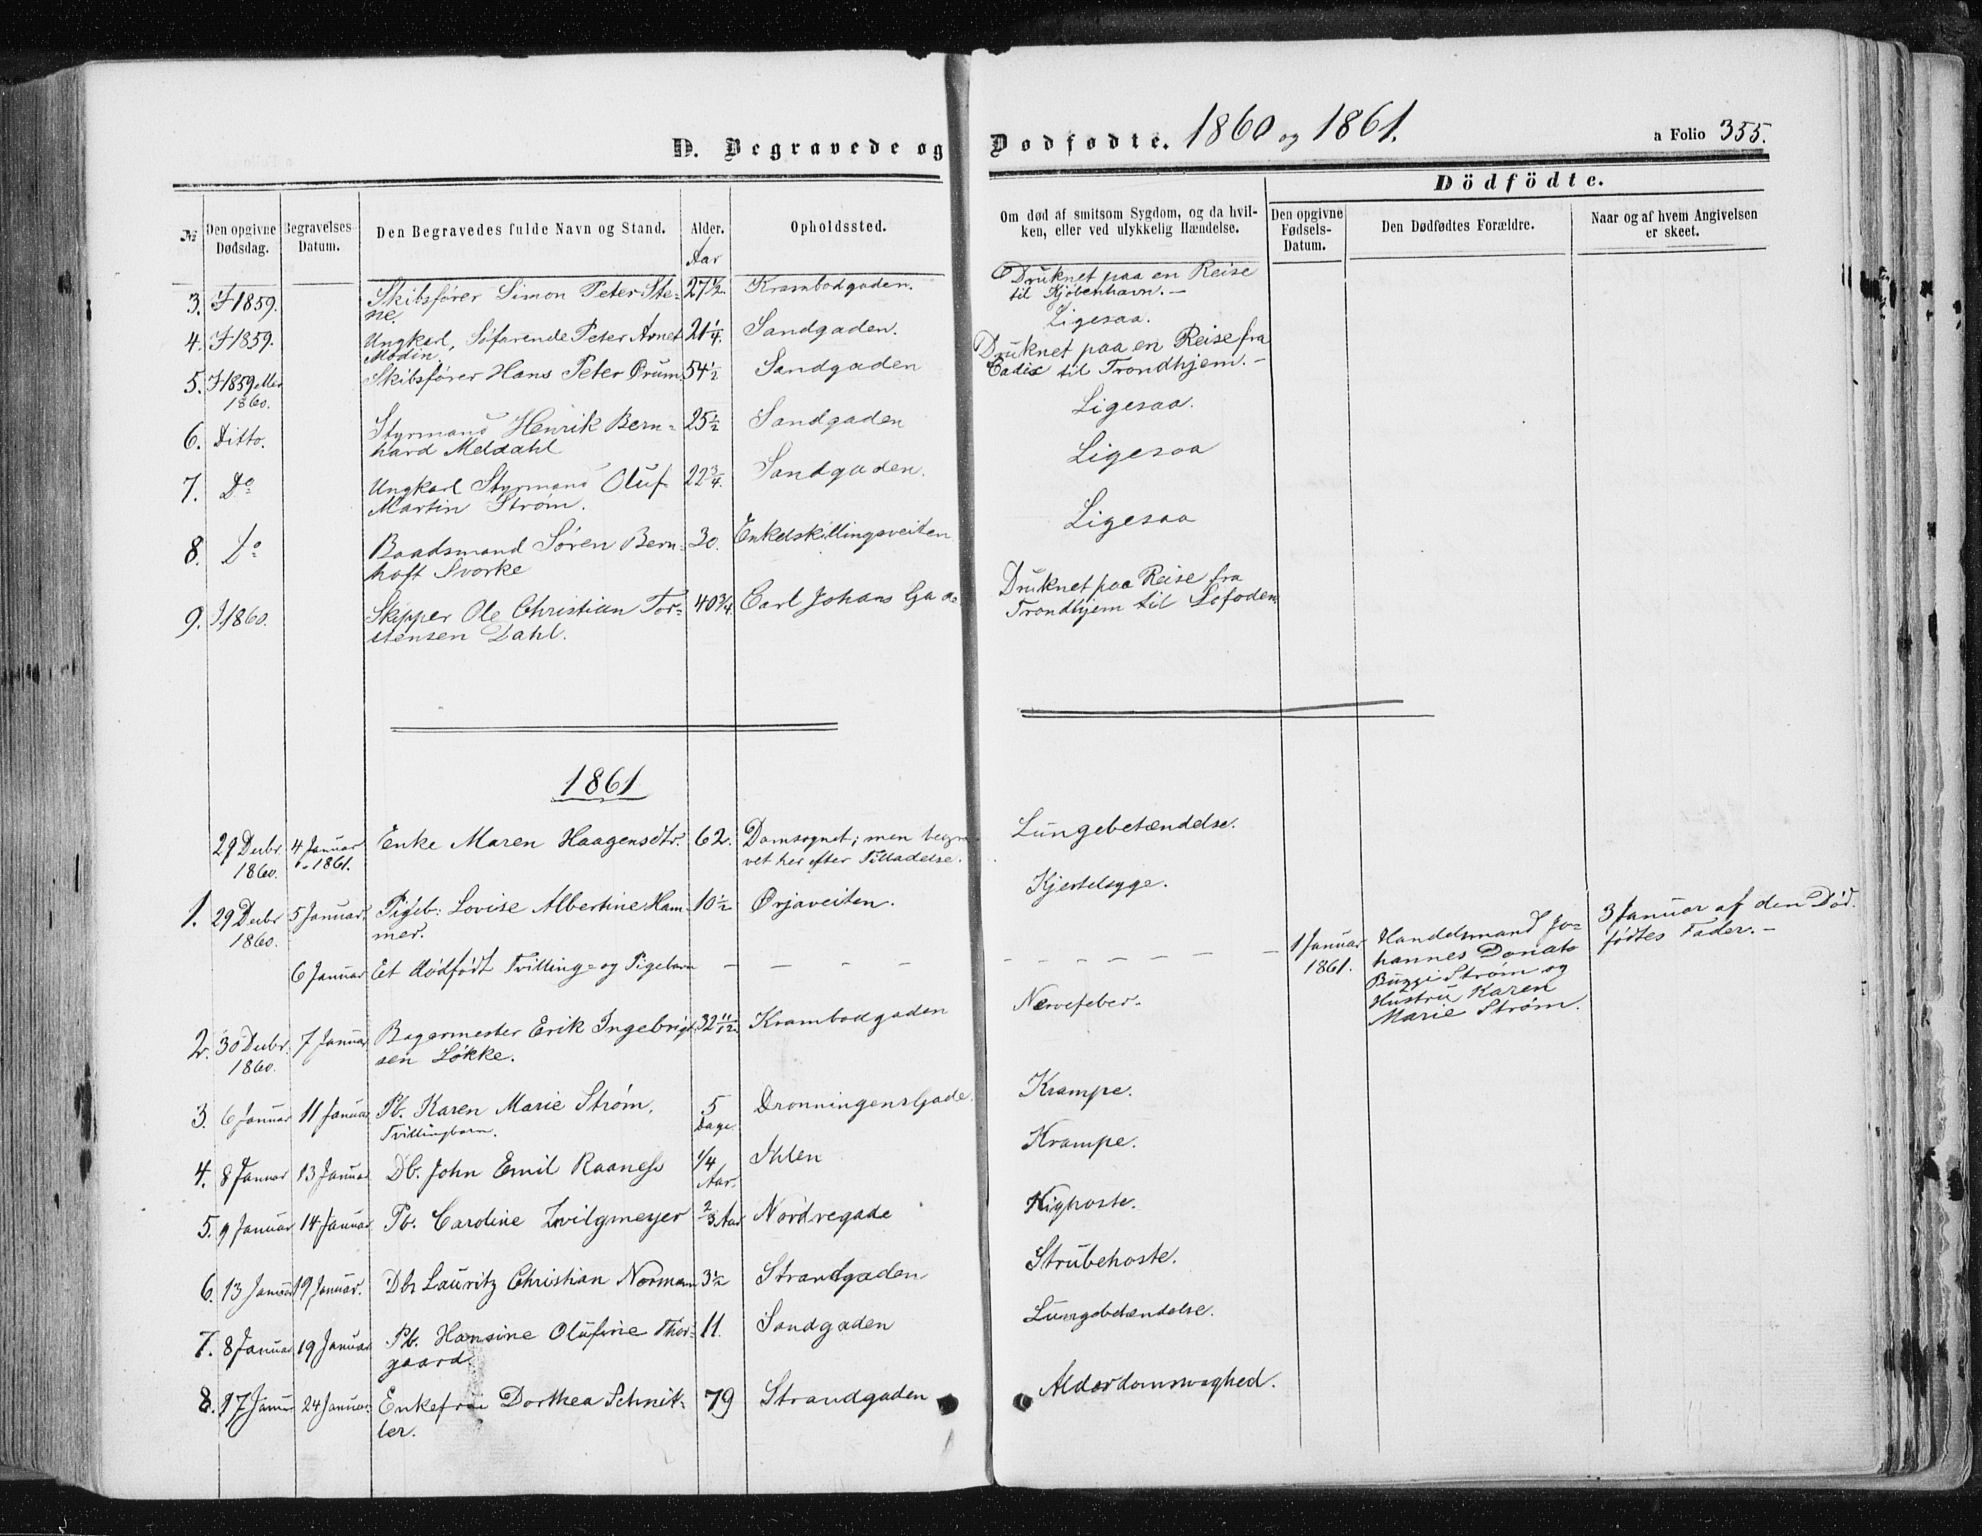 D. Begravede og Dødfødte. 1860 og 1861.
a Folio 355.
Dödfödte.
№
Den opgivne Dødsdag.
Begravelses Datum.
Den Begravedes fulde Navn og Stand.
Alder.
Aar
Opholdssted.
Om død af smitsom Sygdom, og da hvil-
ken, eller ved ulykkelig Hændelse.
Den opgivne Fødsels-Datum.
Den Dødfødtes Forældre.
Naar og af hvem Angivelsen
er skeet.
3. I 1859. Skibsfører Simon Peter Ste- 27½ Krambodgaden. Druknet paa en Reise
ne. til Kjøbenhavn. —
4. I 1859. Ungkarl, Søfarende Peter Arnet 21¼ Sandgaden. Ligesaa.
Modin
5. I 1859 eller Skibsfører Hans Peter Ørum 54½ Sandgaden Druknet paa en Reise fra
1860. Cadix til Trondhjem. —
6. Ditto. Styrmand Henrik Bern- 25½ Sandgaden Ligesaa.
hard Meldahl
7. Do Ungkarl Styrmand Oluf 22¾ Sandgaden. Ligesaa
Martin Strøm.
8. Do Baadsmand Søren Bern- 30. Enkelskillingsveiten Ligesaa
hoft Svorke
9. I 1860. Skipper Ole Christian Tor- 40¾ Carl Johans Gade Druknet paa Reise fra
stensen Dahl. Trondhjem til Lofoden
1861
29 Decbr 4 Januar Enke Maren Haagensdtr. 62. Domsognet; men begra- Lungebetændelse.
1860. 1861. vet her efter Tilladelse.
1. 29 Decbr 5 Januar. Pigeb: Lovise Albertine Ham- 10½ Ørjaveiten. Kjertelsyge.
1860. mer.
6 Januar Et dødfødt Tvilling- og Pigebarn — — — — 1 Januar Handelsmand Jo- 3 Januar af den Død-
1861. hannes Donato fødtes Fader. —
Buzzi Strøm og
Hustru Karen
Marie Strøm.
2. 30 Decbr. 7 Januar Bagermester Erik Ingebrigt- 32 11/12 Krambodgaden Nervefeber.
1860. sen Løkke.
3. 6 Januar 11 Januar Pb. Karen Marie Strøm. 5 Dronningens Gade. Krampe.
Tvillingbarn. Dage.
4. 8 Januar 13 Januar Db. John Emil Raaness 1/4 Ihlen Krampe.
Aar.
5. 9 Januar 14 Januar Pb. Caroline Zwilgmeyer 2/3 Aar Nordregade Kighoste.
6. 13 Januar 19 Januar. Db. Lauritz Christian Norman 3½ Strandgaden Strubehoste.
7. 8 Januar 19 Januar Pb. Hansine Olufine Thor- 11. Sandgaden Lungebetændelse.
gaard.
8. 17 Januar 24 Januar Enkefrue Dorthea Schnit- 79 Strandgaden Alderdomssvaghed.
ler.